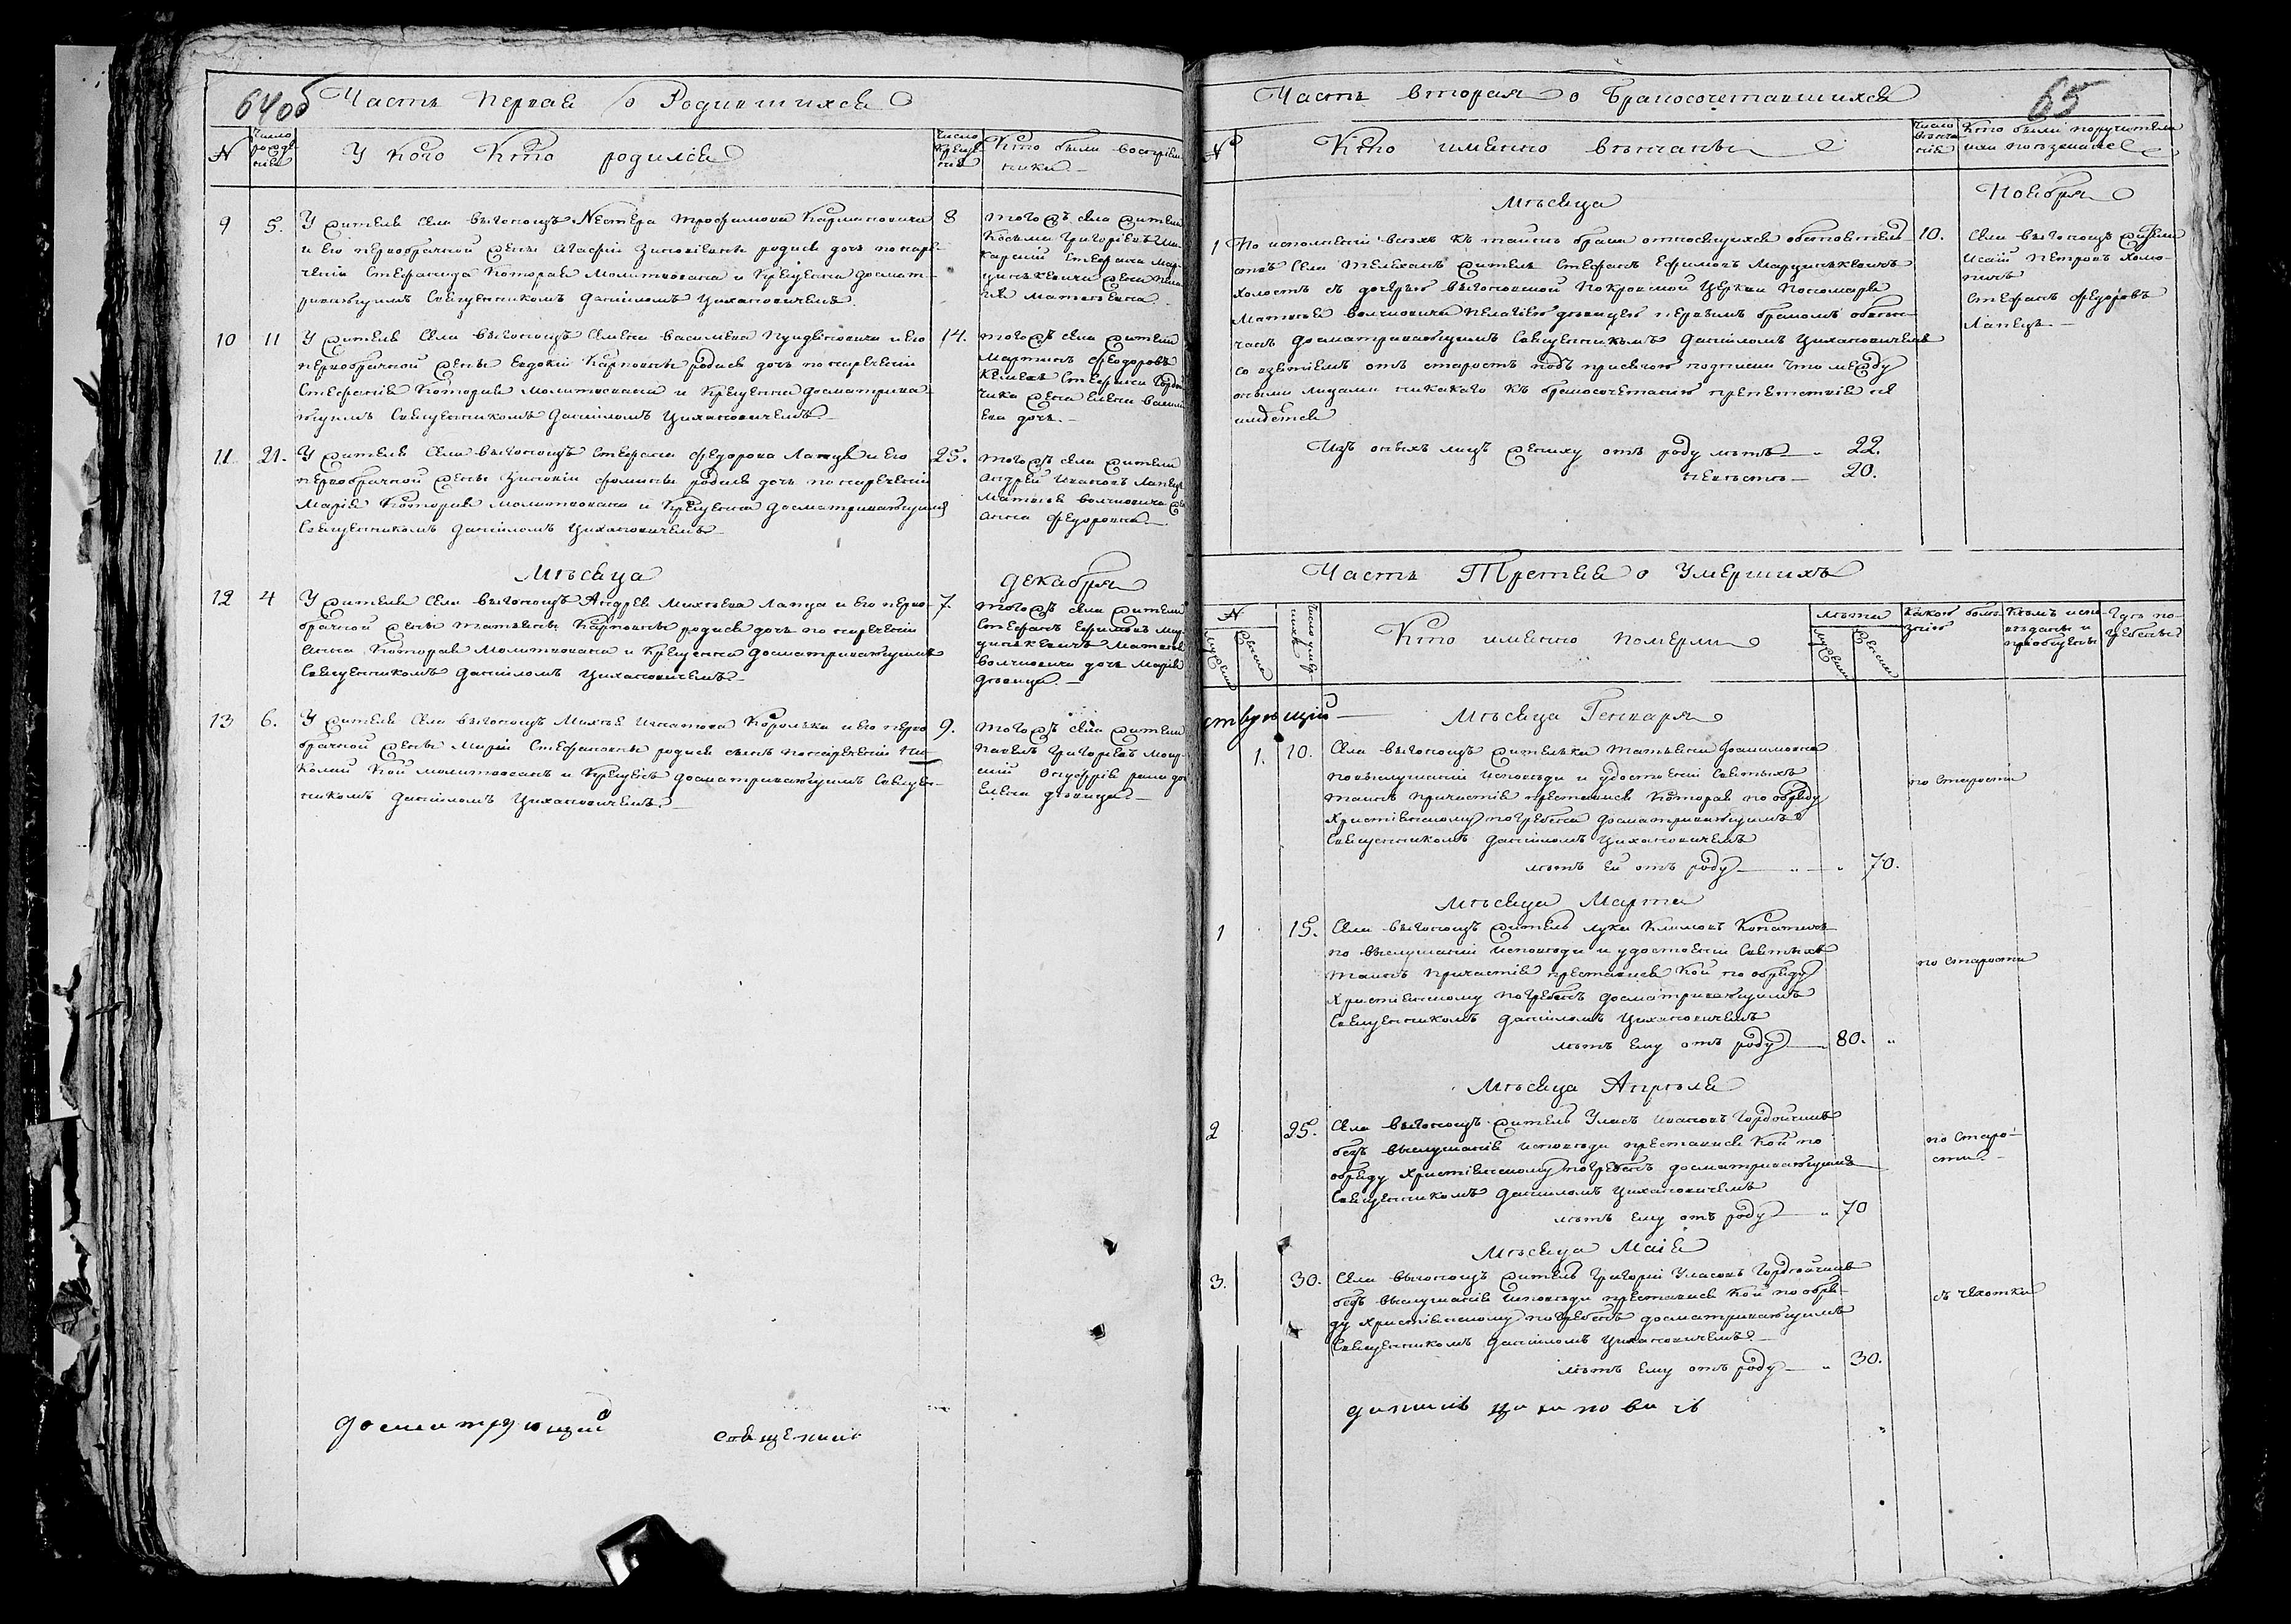 64об
Часть Первая о Родившихся
N
Число рожде нія
У кого Кто родился
Число Креще нія
Кто были воспріем
ники
9 5. У жителя села выгонощъ Нестера Трофимова Кармановича 8
и его первобрачной жены Агафіи Зиновіевны родися дочь по наре
ченіи Стефанида которая молитвована и Крещенна досмат-
ривающимъ Священникомъ Даніиломъ Цихановичемъ.
тогожъ села жители
Косьма Григоріевъ
Стефана
жена
Матвеева
10 11 У жителя села выгонощъ Семена Василева и его 14.
первобрачной жены Евдокіи Карповны родися дочь по нареченіи
Стефанія которая молитвованна и Крещенна досматрива-
ющимъ Священникомъ Даніиломъ Цихановичемъ.
тогожъ села жители
Мартинъ Феодоровъ
Стефана
жена Елена
Ева дочь.
11 21. У жителя села выгонощъ Стефана Федорова Лапця и его 25.
первобрачной жены Зиновіи Фомины родися дочь по нареченіи
Марія которая молитвована и Крещенна досматривающимъ
Священникомъ Даніиломъ Цихановичемъ
тогожъ села жители
Андрей Ивановъ Лапецъ
Матвея волчковича
Анна Федоровна.
Мѣсяца Декабря
12 4 У жителя села выгонощъ Андрея Михеева Лапца и его перво- 7.
брачной жены Татьяны Карповны родися дочь по нареченіи
Анна которая молитвована и Крещенна досматривающимъ
Священникомъ Даніиломъ Цихановичемъ.
тогожъ села жители
Стефанъ Ефимовъ Мар
цинкевичъ Матвея
волчковича дочь Марія
девица.
13 6. У жителя села выгонощъ Михея Игнатова Королька и его перво 9.
брачной жены Маріи Стефановны родися сынъ по нареченіи Ни
колай Кой молитвованъ и Крещенъ досматривающимъ Священ-
никомъ Даніиломъ Цихановичемъ.
тогожъ села жители
Павелъ Григоріевъ
Онуфрія
Елена девица
досматрующій священникъ
65
Часть вторая о Бракосочетавшихся
N
Кто именно вѣнчаны
Число вѣнча нія
Кто были поручители
или поезжане
Мѣсяца Ноября
1 По исполненіи всѣхъ къ тайнѣ брака относящихся обстоятель- 10.
ствъ села Телеханъ житель Стефанъ Ефимовъ Марцинкевичъ
холостъ съ дочерью выгоновской Покровской Церкви Пономаря
Матвея волчковича Пелагіею девицею первымъ бракомъ обвен-
чанъ досматривающимъ Священникомъ Даніиломъ Цихановичемъ
со взятіемъ отъ старостъ подъ присягою подписки что между
оными лицами никакаго къ бракосочетанію препятствія не
имѣется
Изъ оныхъ лицъ жениху отъ роду лѣтъ 22.
невѣсте 20.
села выгонощъ жители
Исаій Петровъ
Стефанъ Федоровъ
Лапецъ
Часть Третья о Умершихъ
N
мужеска
женска
Число умер шихъ
Кто именно померли
лѣта
мужеска
женска
Какою болѣ
знію
Кѣмъ испо
вѣданы и
пріобщены
Гдѣ по-
гребены
ствующій
Мѣсяца Генваря
1. 10. Села выгонощъ жителька Татьяна
по выслушаніи исповеди и удостоеніи Святыхъ
таинъ причастія преставися которая по обряду
Христіянскому погребена досматривающимъ
Священникомъ Даніиломъ Цихановичемъ
лѣтъ ей отъ роду 70.
по старости
Мѣсяца Марта
1 15. Села выгонощъ житель Лука Климовъ
по выслушаніи исповеди и удостоеніи Святыхъ
таинъ причастія преставися кой по обряду
Христіянскому погребенъ досматривающимъ
Священникомъ Даніиломъ Цихановичемъ
лѣтъ ему отъ роду 80.
по старости
Мѣсяца Апрѣля
2 25. Села выгонощъ житель Уласъ Ивановъ Гордейчикъ
безъ выслушанія исповеди преставися Кой по
обряду Христіянскому погребенъ досматривающимъ
Священникомъ Даніиломъ Цихановичемъ
лѣтъ ему отъ роду 70
по старо-
сти
Мѣсяца Маія
3. 30. Села выгонощъ житель Григорій Уласовъ Гордейчикъ
безъ выслушанія исповеди преставися кой по обря-
ду Христіянскому погребенъ досматривающимъ
Священникомъ Даніиломъ Цихановичемъ.
лѣтъ ему отъ роду 30.
съ чахотки
даниилъ цихановичъ